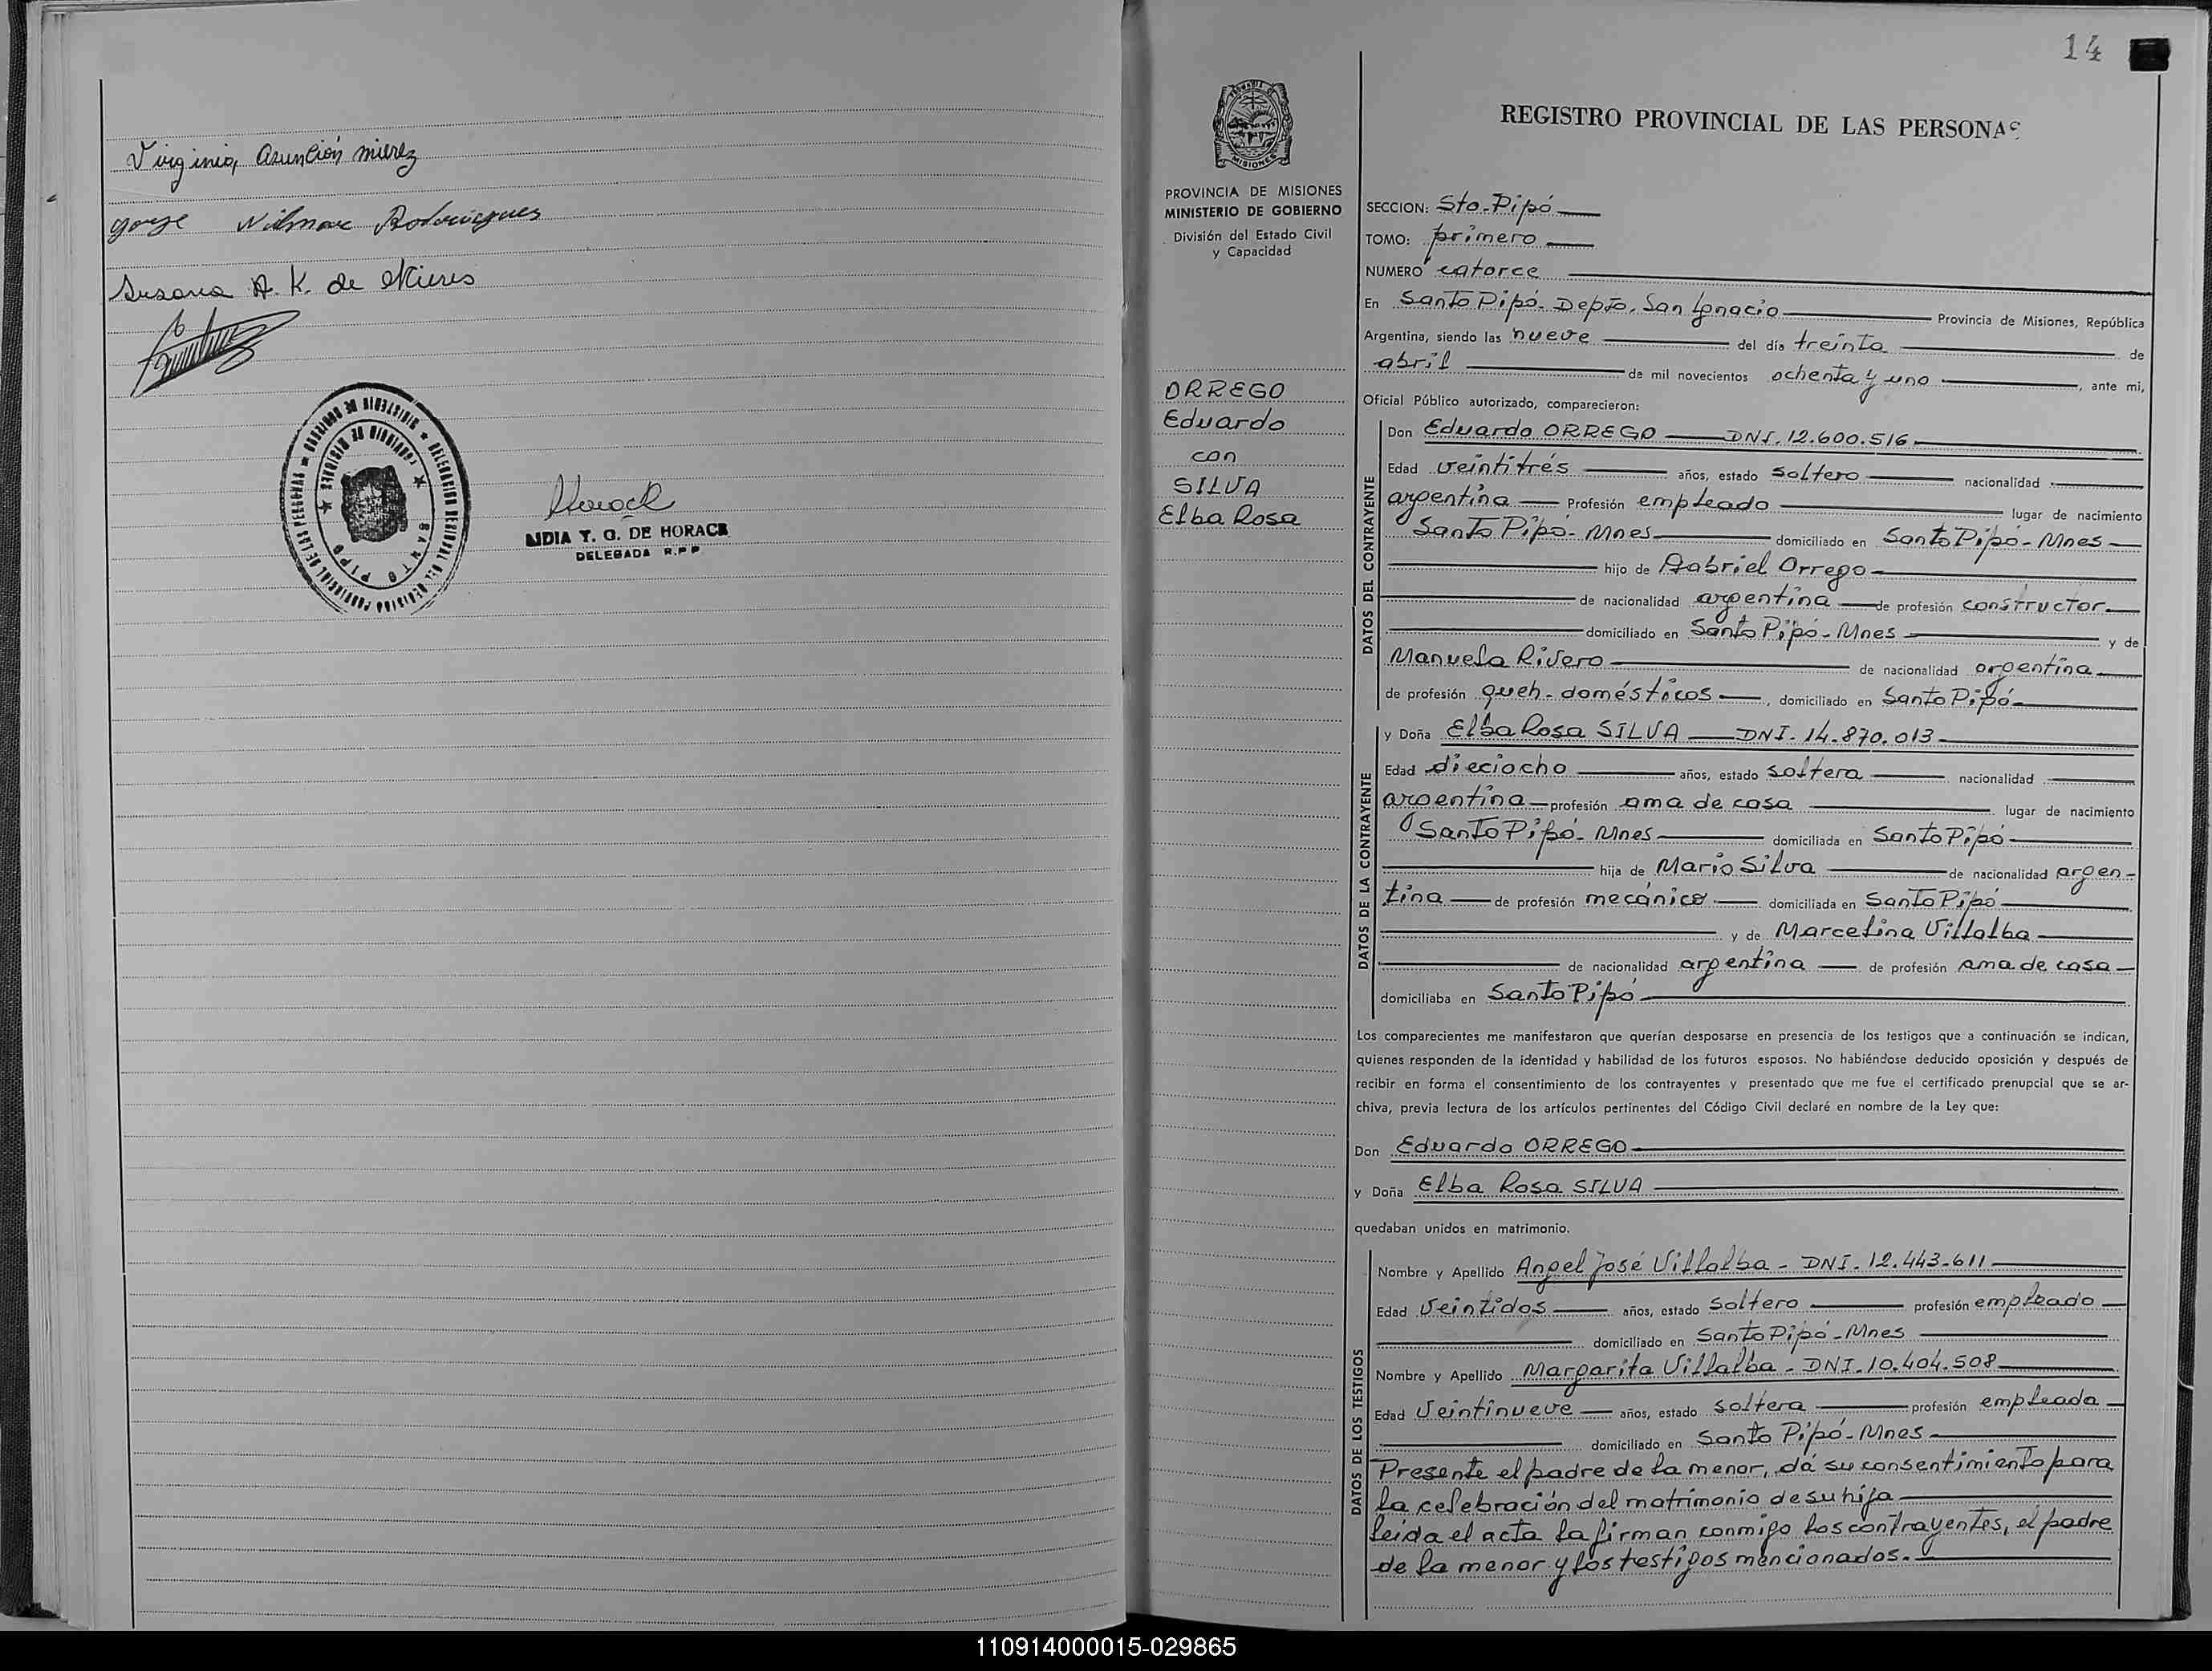 Virginia Asunción Mierez
Jorge Wilmar Rodrigues
Susana A. K. de Mieres
SANTO PIPO
LIDIA Y. G. DE HORACK
DELEGADA R.P.P
14
PROVINCIA DE MISIONES
MINISTERIO DE GOBIERNO
División del Estado Civil
y Capacidad
ORREGO
Eduardo
con
SILVA
Elba Rosa
REGISTRO PROVINCIAL DE LAS PERSONAS
SECCION: Sto. Pipó
TOMO: primero
NUMERO catorce
En Santo Pipó - Depto. San Ignacio Provincia de Misiones, República
Argentina, siendo las nueve del día treinta de
abril de mil novecientos ochenta y uno, ante mi,
Oficial Público autorizado, comparecieron:
DATOS DEL CONTRAYENTE
Don Eduardo ORREGO DNI. 12.600.516
Edad veintitrés años, estado soltero nacionalidad
argentina Profesión empleado lugar de nacimiento
Santo Pipó - Mnes domiciliado en Santo Pipó - Mnes
hijo de Gabriel Orrego
de nacionalidad argentina de profesión constructor
domiciliado en Santo Pipó - Mnes y de
Manuela Rivero de nacionalidad argentina
de profesión queh. domésticos, domiciliado en Santo Pipó
DATOS DE LA CONTRAYENTE
y Doña Elba Rosa SILVA DNI. 14.870.013
Edad dieciocho años, estado soltera nacionalidad
argentina profesión ama de casa lugar de nacimiento
Santo Pipó - Mnes domiciliada en Santo Pipó
hija de Mario Silva de nacionalidad argen-
tina de profesión mecánico domiciliada en Santo Pipó
y de Marcelina Villalba
de nacionalidad argentina de profesión ama de casa
domiciliaba en Santo Pipó
Los comparecientes me manifestaron que querían desposarse en presencia de los testigos que a continuación se indican,
quienes responden de la identidad y habilidad de los futuros esposos. No habiéndose deducido oposición y después de
recibir en forma el consentimiento de los contrayentes y presentado que me fue el certificado prenupcial que se ar-
chiva, previa lectura de los artículos pertinentes del Código Civil declaré en nombre de la Ley que:
Don Eduardo ORREGO
y Doña Elba Rosa SILVA
quedaban unidos en matrimonio.
DATOS DE LOS TESTIGOS
Nombre y Apellido Angel José Villalba - DNI. 12.443.611
Edad Veintidos años, estado soltero profesión empleado
domiciliado en Santo Pipó - Mnes
Nombre y Apellido Margarita Villalba - DNI. 10.404.508
Edad Veintinueve años, estado soltera profesión empleada
domiciliado en Santo Pipó - Mnes
Presente el padre de la menor, dá su consentimiento para
la celebración del matrimonio de su hija
leída el acta la firman conmigo los contrayentes, el padre
de la menor y los testigos mencionados.
110914000015-029865